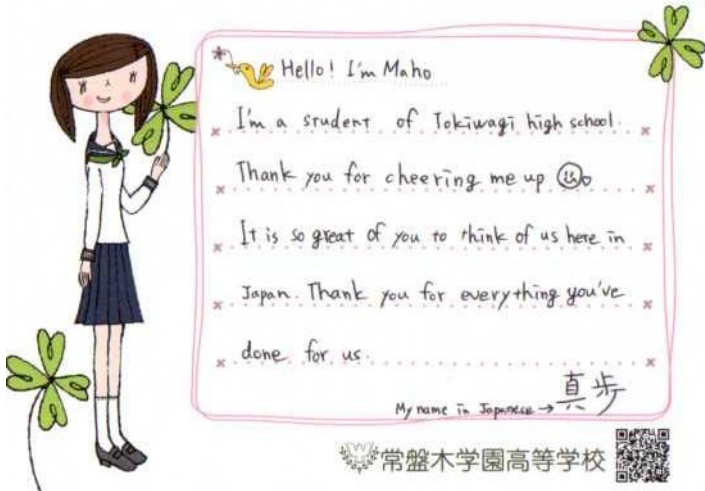 Hello! I'm Maho
I'm a student of Tokiwagi high school.
Thank you for cheering me up
It is so great of you to think of us here in
Japan. Thank you for everything you've
done for us.
My name in Japanese → 真歩
常盤木学園高等学校